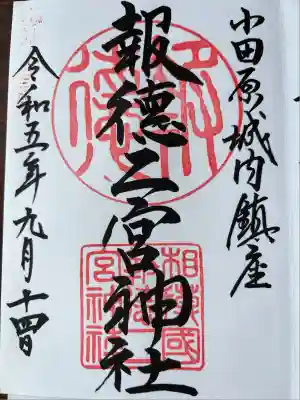 小田原城内鎮座
報徳二宮神社
令和五年九月十四日
報徳
相模國
報徳二
宮神社